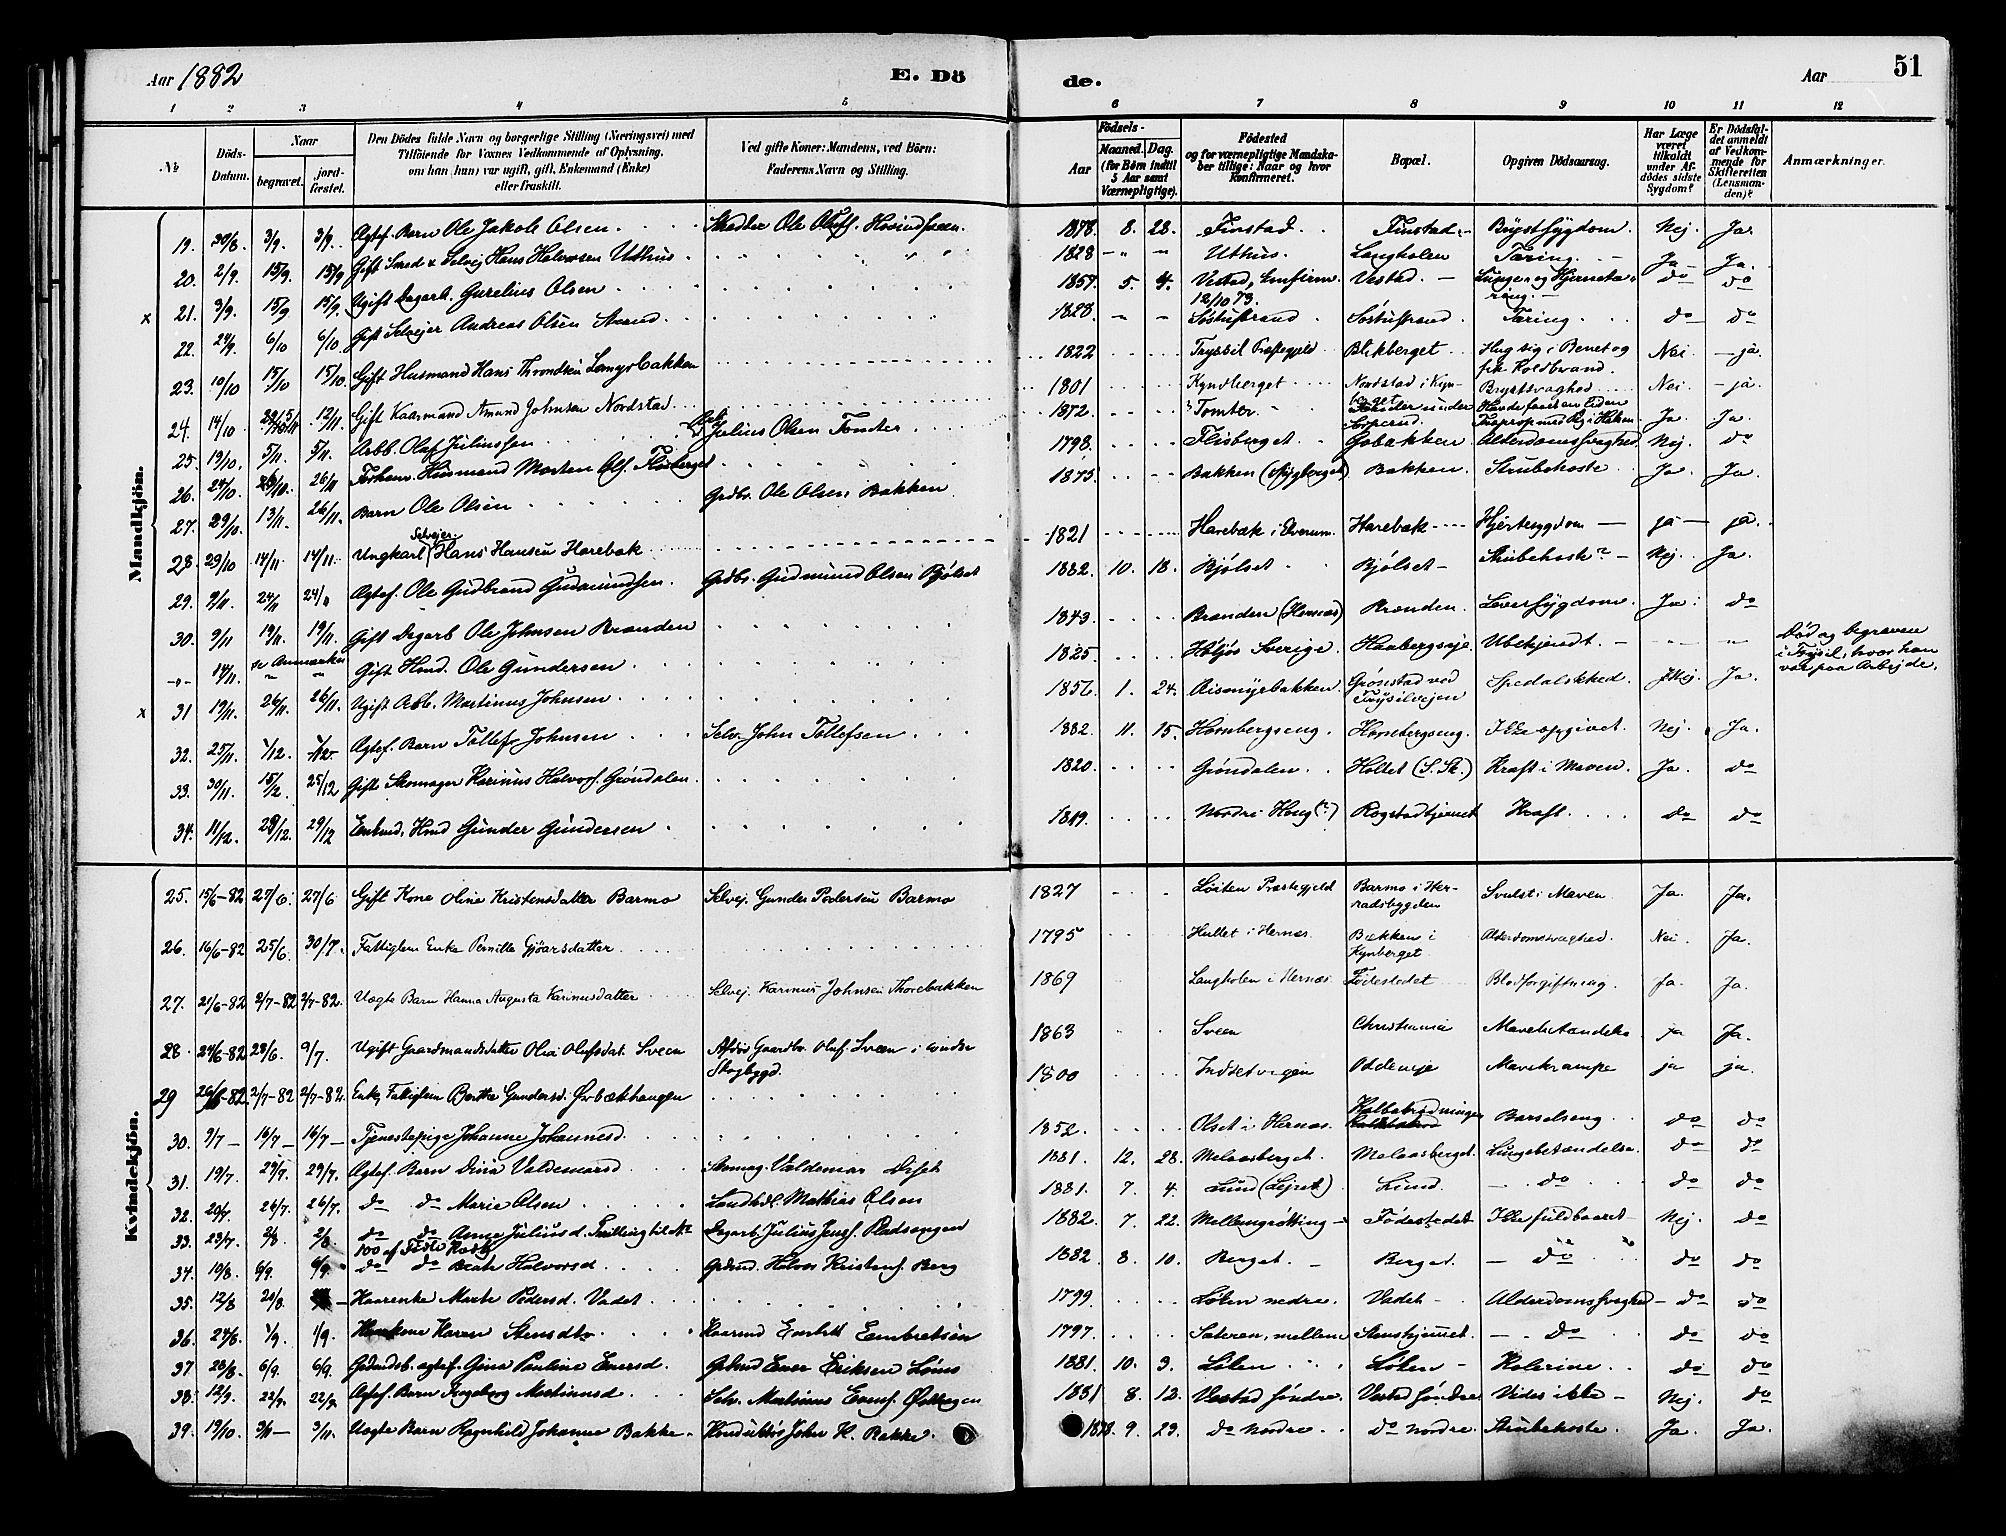 Aar 1882
E. Dö
de.
Aar
51
1 2 3 4 5 6 7 8 9 10 11 12
№
Döds-Datum.
Naar
begravet.
jordfæstet.
Den Dödes fulde Navn og borgerlige Stilling (Næringsvei) med
Tilföiende for Voxnes Vedkommende af Oplysning,
om han (hun) var ugift, gift, Enkemand (Enke)
eller fraskilt.
Ved gifte Koner: Mandens, ved Börn:
Faderens Navn og Stilling.
Födsels-
Aar
Maaned. Dag.
(for Börn indtil 5 Aar samt Værnepligtige).
Födested
og for værnepligtige Mandskaber tillige: Naar og hvor Konfirmeret.
Bopæl.
Opgiven Dödsaarsag.
Har Læge været tilkaldt under Afdödes sidste Sygdom?
Er Dödsfaldet anmeldt af Vedkommende for Skifteretten (Lensmanden)?
Anmærkninger.
Mandkjön.
19. 30/8. 3/9. 3/9. Ægtef. Barn Ole Jakob Olsen. Ole Hovindsveen. 1878. 8. 28. Finstad. Finstad. Brystsygdom. Nej. Ja.
20. 2/9. 15/9. 15/9 Gift Smed & Selvej. Hans Halvorsen Uthus. 1828 Uthus. Langholen Tæring. Ja Ja.
x 21. 3/9. 15/9 15/9. Ugift Dagarb. Gurelius Olsen 1857. 5. 4. Vestad, Confirm. 12/10 73. Vestad. Lunge- og Hjernetæring. do do
22. 24/9. 6/10 6/10 Gift Selvejer Andreas Olsen Strand. 1828. Söstustrand. Söstustrand. Tæring. do do
23. 10/10 15/10 15/10. Gift Husmand Hans Throndsen Lomyrbakken 1822 Trysil Præstegjeld Blikberget. Hug sig i Benet og fik Koldbrand. Nei ja.
24. 14/10 12/11. Gift Kaarmand Amund Johnsen Nordstad 1801 Kyndberget Nordstad i Kynberget Brystsvaghed Nei ja.
25. 19/10. 5/11. 5/11. Arb. Olaf Juliussen Julius Olsen Tomter. 1872. Tomter. Ja Ja.
26. 24/10. 26/11 Forhenv. Husmand Morten Ols. Flisberget 1798. Flisberget Gobakken. Alderdomssvaghed Nej. do
27. 29/10. 13/11. 26/11. Barn Ole Olsen Grdbr. Ole Olsen Bakken 1875 Bakken (Stygberget) Bakken. Strubehoste Ja. Ja
28. 29/10 14/11. 14/11. Ungkarl Selvejer Hans Hansen Harebæk 1821 Harebæk i Elverum. Harebæk Hjertesygdom ja ja.
29. 9/11. 24/11 24/11 Ægtef. Ole Gudbrand Gudmundsen. Grdbr. Gudmund Olsen Bjölset 1882. 10. 18. Bjölset Bjölset Strubehoste? Nej. Ja.
30. 9/11 19/11. 19/11. Gift Dagarb Ole Johnsen Brænden 1843. Brænden (Hernæs) Brænden. Leversygdom. Ja. do
-o- 14/11. se Anmærkn Gift Hmd. Ole Gundersen 1825. Höljös Sverige. Haabergseje. Ubekjendt. Död og begraven i Trysil, hvor han var paa Arbejde.
x 31 19/11. 26/11. 26/11. Ugift Arb. Martinus Johnsen 1856. 1. 24. Grönstad ved Trysilvejen Spedalskhed. Nej. Ja.
32. 25/11. 1/12. 1/12. Ægtef. Barn Tollef Johnsen Selv. John Tollefsen 1882. 11. 15. Hornbergseng. Hornbergseng. Ikke opgivet. Nej. Ja.
33. 30/11. 15/12 25/12 Gift Skomager Karinus Halvors. Gröndalen. 1820. Gröndalen. Holtet (S. Sk.) Kræft i Maven. Ja. do
34. 11/12. 29/12. 29/12 Enkmd. Hmd Gunder Gundersen 1819. Nordre Haug (?) Rogstadtjernet Kræft. do do
Kvindekjön.
25. 15/6-82 27/6. 27/6 Gift Kone Oline Kristensdatter Barmo Selvej. Gunder Pedersen Barmo 1827 Löiten Præstegjeld Barmo i Herradsbygden Svulst i Maven Ja. Ja.
26. 16/6-82 25/6. 30/7. Fattiglem Enke Pernille Gjöarsdatter 1795 Hullet i Hernæs. Bækken i Kynberget. Alderdomsvaghed. Nei. Ja.
27. 21/6-82 2/7-82 2/7-82. Uægte Barn Hanna Augusta Karinusdatter Selvej. Karinus Johnsen Thorebakken 1869 Langholen i Hernæs Födestedet Blodforgiftning. Ja. Ja.
28 24/6-82 28/6. 9/7. Ugift Gaardmandsdatter Olea Olufsdat. Sveen Afdöd Gaardbr. Oluf Sveen i söndre Skogbygd. 1863 Sveen Christiania Mavebetændelse ja Ja.
29 26/6-82. 2/7-82 2/7-82. Enke, Fattiglem Berthe Gundersd. Örbækhaugen 1800 Indsetvigen Oddeneje Mavekrampe ja ja.
30. 9/7 16/7 16/7 Tjenestepige Johanne Johannesd. 1852. Olset i Hernæs. Barselseng do do
31. 19/7. 29/7. 29/7. Ægtef. Barn Dina Valdemarsd. Skomag. Valdemar Diset 1881. 12. 28. Melaasberget. Melaasberget. Lungebetændelse. do do
32. 20/7. 26/7. 26/7. do do Marie Olsen Landhdl. Mathias Olsen 1881. 7. 4. Lund (Lejret) Lund. do do do
33. 23/7. 2/8. 2/8. do do Anne Juliusd. Tvilling til № 100 af Födte Dagarb. Julius Jens. Pladsengen 1882. 7. 22. Födestedet Ikke fuldbaaret Nej. do
34. 19/8. 6/9. 6/9. do do Beate Halvorsd. Grdmd. Halvor Kristens. Berg 1882 8. 10. Berget. Berget. do do do
35. 12/8 20/8. Kaarenke Marte Pedersd. Vadet 1799. Löken nedre. Vadet Alderdomssvaghed do do
36. 24/8. 1/9. 1/9. Karen Stensdtr. Kaarmd Embret Embretsen 1797. Sæteren, mellem Stenstjernet. do do do
37. 28/8. 6/9. 6/9. Grdmdsb. ægtef. Gina Pauline Eversd. Grdmd Ever Eriksen Löms 1881. 10. 3. Löken Löken Kolerine do do
38. 12/9. 22/9. 22/9. Ægtef. Barn Ingeborg Martinusd. Selv. Martinus Evens. 1881 8. 12. Vestad söndre. Vestad söndre Vides ikke Nej. do
39. 19/10. 3/11 3/11. Uægte Barn Ragnhild Johanne Bakke. Konduktör John H. Bakke. 1878. 9. 23. do nordre do nordre Strubehoste. Ja. Ja.